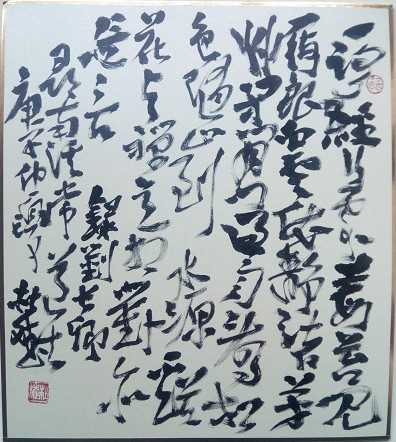 一路經行處莓苔見
履痕白雲依靜渚草
閑門過雨看松
色隨山到水源溪
花與禪意相對亦
忘言 錄劉長卿
尋南溪常道士
庚子仲